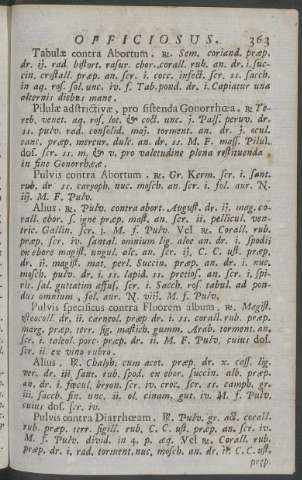 OFFICIOSUS. 363
Tabulæ contra Abortum. ℞. Sem. coriand. præp.
dr. ij. rad. bistort. rasur. ebor. corall. rub. an. dr. i. suc-
cin. cristall. præp. an. scr. i. cocc. infect. scr. ss. sacch.
in aq. ros. sol. unc. iv. f. Tab. pond. dr. i. Capiatur una
alternis diebus mane.
Pilulæ adstrictivæ, pro sistenda Gonorrhœa. ℞. Te-
reb. venet. aq. ros. lot. & coct. unc. j. Pass. peruv. dr.
ss. pulv. rad. consolid. maj. torment. an. dr. j. ocul.
canc. præp. mercur. dulc. an. dr. ss. M. F. mass. Pilul.
dos. scr. ss. m. & v. pro valetudine plena restituenda
in fine Gonorrhœæ.
Pulvis contra Abortum. ℞. Gr. Kerm. scr. i. sant.
rub. dr ss. caryoph. nuc. mosch. an. scr. i. fol. aur. N.
iij. M. F. Pulv.
Alius. ℞. Pulv. contra abort. August. dr. ij. mag. co-
rall. ebor. s. igne præp. mast. an. scr. ii. pellicul. ven-
tric. Gallin. scr. j. M. f. Pulv. Vel ℞. Corall. rub.
præp. scr. iv. santal. omnium lig. aloe an. dr. i. spodij
ex ebore magist. ungul. alc. an. scr. ij, C. C. ust. præp.
dr. ij. magist. mat. perl. Succin. præp. an. dr. i. nuc.
mosch. pulv. dr. i. ss. lapid. ss. pretios. an. scr. i. spi-
rit. sal. guttatim affus. scr. i. Sacch. ros. tabul. ad pon-
dus omnium, fol. aur. N. viij. M. f. Pulv.
Pulvis specificus contra Fluorem album. ℞. Magist.
osteocoll. dr. ii. carneol. præp. dr. i. ss. corall. rub. præp.
marg. præp. terr. sig. mastich. gumm. Arab. torment. an.
scr. i. taleol. porc. præp. dr. ii. M. F. Pulv. cuius dos.
scr. ii ex vino rubro.
Alius. ℞. Chalyb. cum acet. præp. dr. x. cass. lig.
ver. dr. iii sant. rub. spod. ex ebor. succin. alb. præp.
an. dr. i. fœcul. bryon. scr. iv. croc. scr. ss. camph. gr.
iii. sacch. fin. unc. ii. ol. cinam. gut. iv. M. f. Pulv.
cuius dos. scr. iv.
Pulvis contra Diarrhœam. ℞. Pulv. gr. act. corall.
rub. præp. terr. sigill. rub. C. C. ust. præp. an. scr. iv.
M. f. Pulv. divid. in 4. p. æq. Vel ℞. Corall. rub.
præp. dr. i, rad. torment. nuc, mosch. an. dr. ij. C. C. ust.
præp.